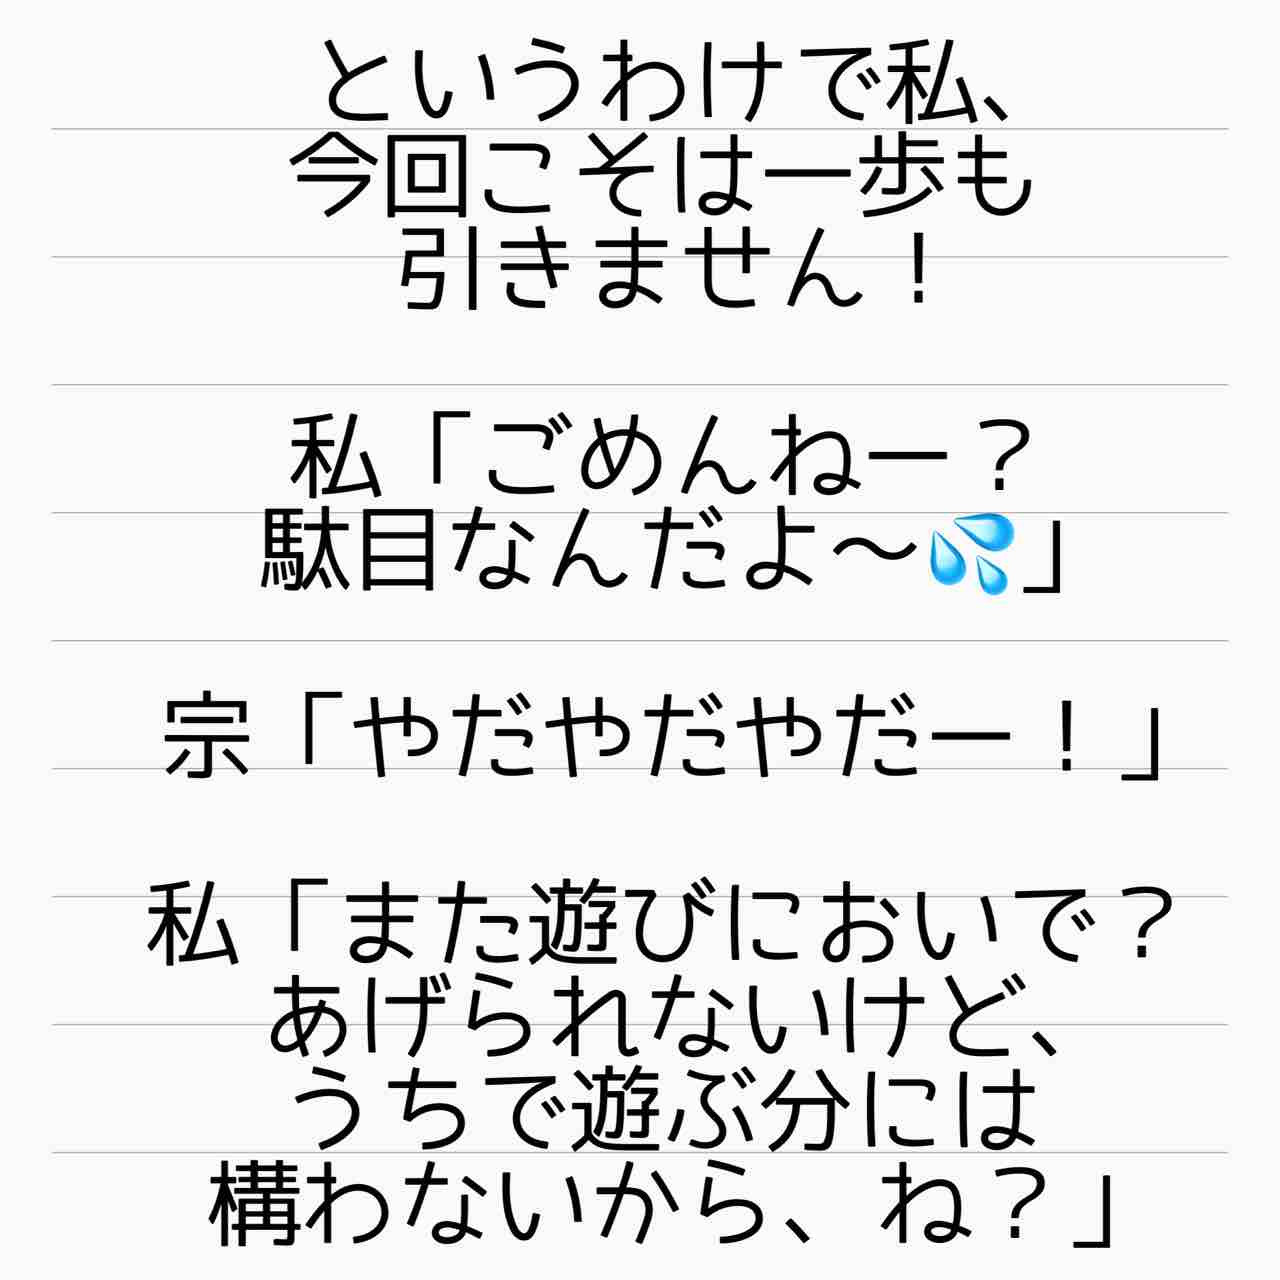 というわけで私、
今回こそは一歩も
引きません！
私「ごめんねー？
駄目なんだよ〜💦」
宗「やだやだやだー！」
私「また遊びにおいで？
あげられないけど、
うちで遊ぶ分には
構わないから、ね？」